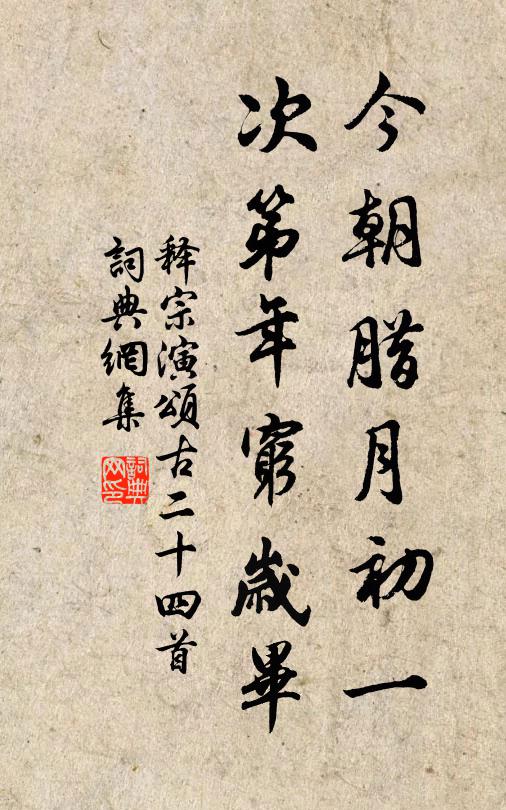 今朝腊月初一
次第年窮歲畢
释宗演頌古二十四首
詞典網集
詞典网印